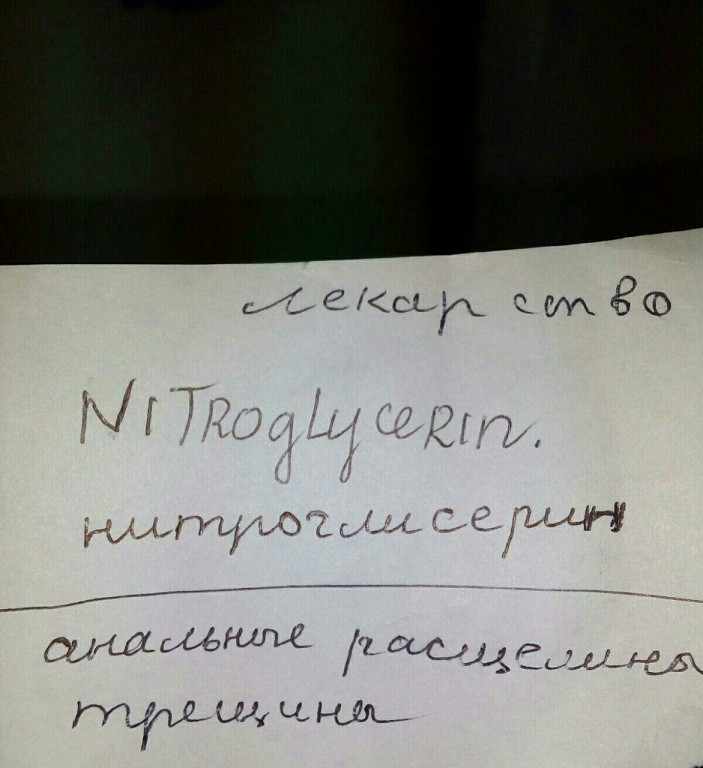 лекарство
NITROgLyceRIn.
нитроглисерин
анальные расщелины
трещины